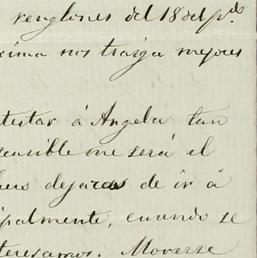 renglones del 18 del pdo.
xima nos traiga mejores
tutar á Angela tan
sensible me será el
dejaras de ir á
cipalmente, cuando se
teresamos. Moverse